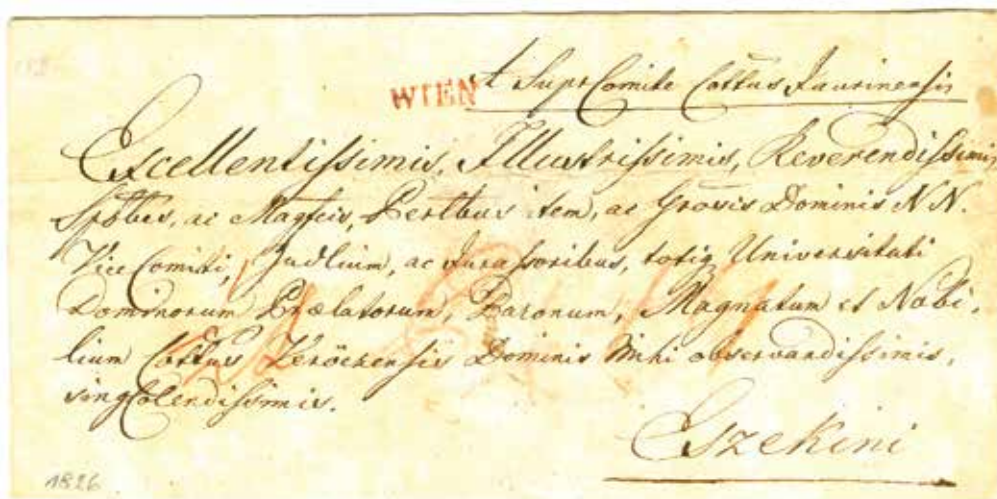 WIEN
A Supr Comite Cottus Jaurinensis
Excellentissimis, Illustrissimis, Reverendissimis,
Spbbus, ac Magfcis, Perltbus item, ac Grosis Dominis N N.
Vice Comiti, Judlium, ac Jurassoribus, totiq Universitati
Dominorum Prælatorum, Baronum, Magnatum et Nobi-
lium Cottus Veröczensis Dominis mihi observandissimis,
sing Colendissimis.
Eszekini
1826